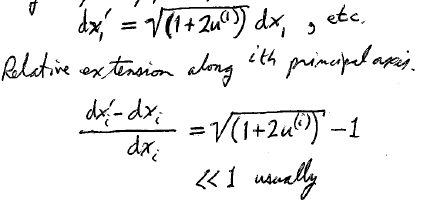 dx₁′ = √(1+2u⁽¹⁾) dx₁ , etc.
Relative extension along ith principal axis.
dxᵢ′ - dxᵢ / dxᵢ = √(1+2u⁽ⁱ⁾) - 1
<< 1 usually